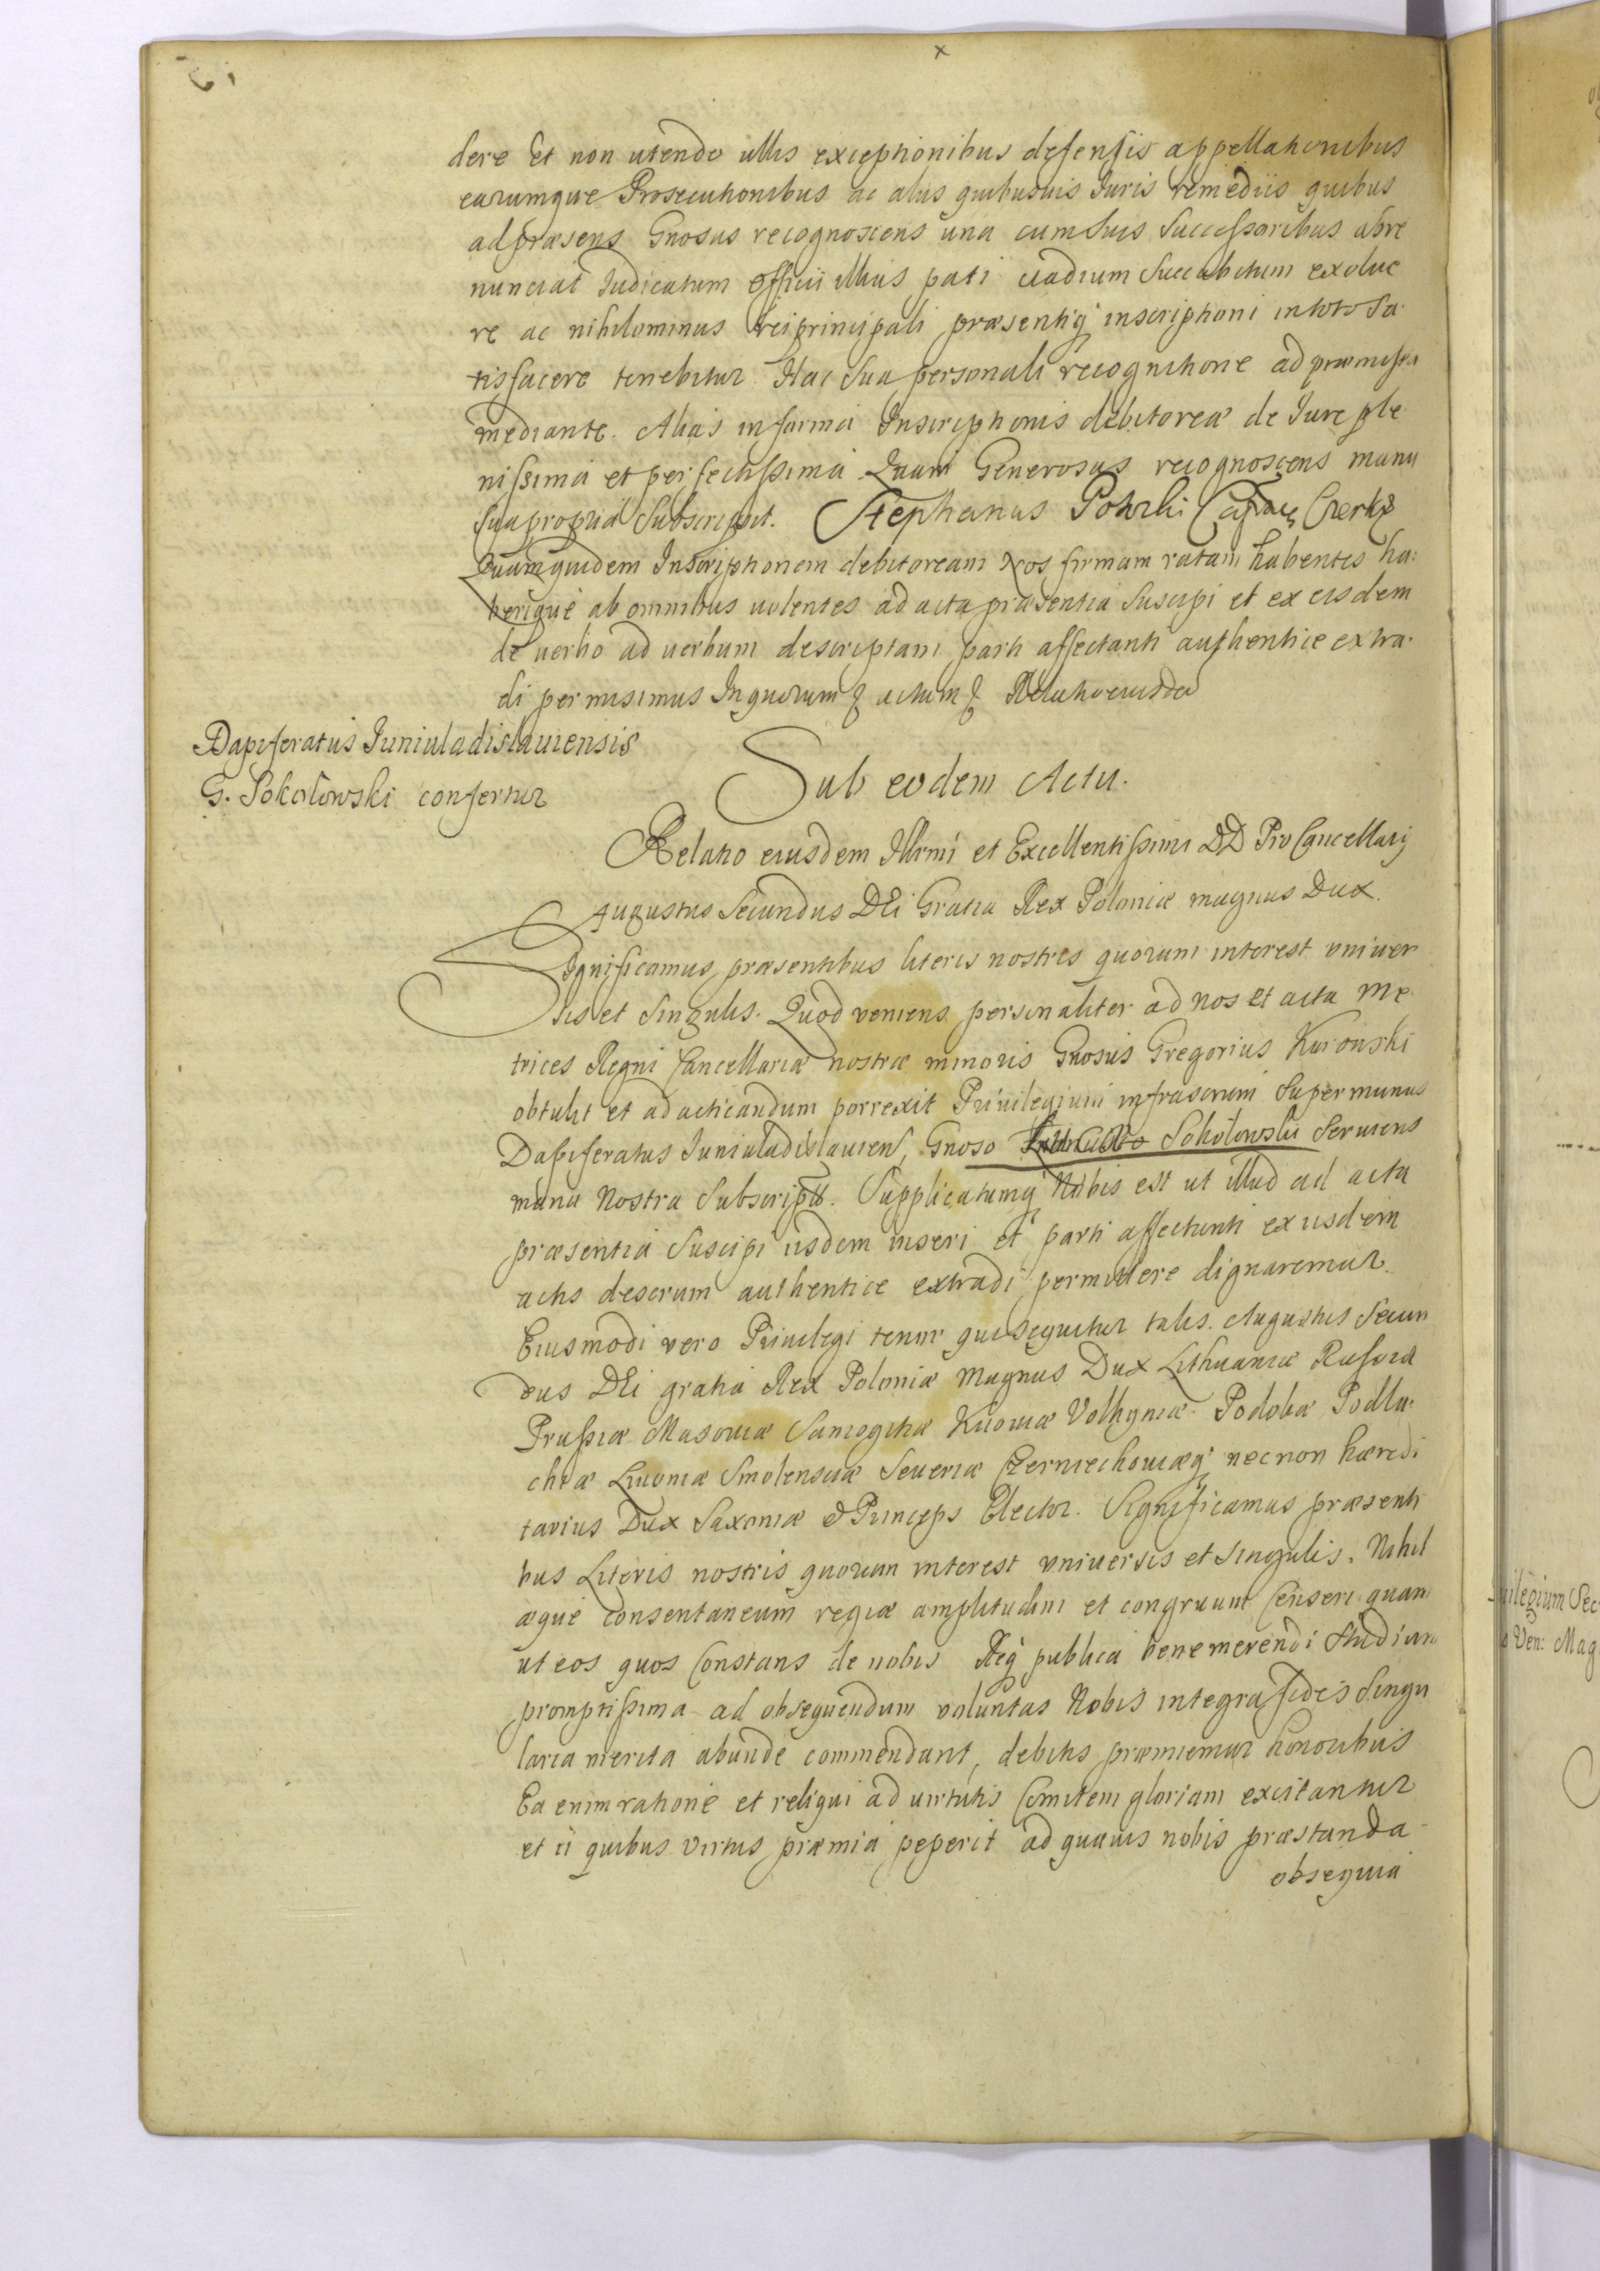 dere Et non utendo ullis exceptionibus defensis appellationibus
earumque Prosecutionibus ac alijs quibusuis Iuris remediis quibus
ad præsens Gnosus recognoscens una cum Suis Successoribus abre
nunciat Iudicatum officii illius pati vadium Succubitum exolue
re ac nihilominus rei principali præsentiq inscriptioni in toto Sa
tisfacere tenebitur Hac Sua personali recognitione ad præmissa
mediante. Alias in forma Inscriptionis debitoreæ de Iure ple
nissima et perfectissima Quam Generosus recognoscens manu
Sua propria Subscripsit. Stephanus
Quamquidem Inscriptionem debitoream Nos firmam ratam habentes ha:
berique ab omnibus uolentes ad acta præsentia Suscipi et ex eisdem
de uerbo ad uerbum descriptam parti affectanti authentice extra.
di permisimus In quorum actum Relatio eiusde
Dapiferatus Juniuladislauiensis
G. Sokołowski confertur
Sub eodem Actu.
Relatio eiusdem Illrmi et Excellentissimi DD ProCancellarij
Augustus Secundus DEi Gratia Rex Poloniæ magnus Dux.
Significamus præsentibus literis nostris quorum interest vniuer
sis et Singulis. Quod veniens personaliter ad nos et acta Me
trices Regni Cancellariæ nostræ minoris Gnosus Gregorius Kuronski
obtulit et ad acticandum porrexit Priuilegium infrascrum Super munus
Dapiferatus Juniuladislauien, Gnoso Sokołowski Seruiens
manu Nostra Subscript. Supplicatumq Nobis est ut illud ad acta
præsentia Suscipi iisdem inseri et parti affectanti ex iisdem
actis descrum authentice extradi permittere dignaremur.
Eiusmodi vero Priuilegi tenor qui sequitur talis. Augustus Secun
dus DEi gratia Rex Poloniæ Magnus Dux Lithuaniæ Russiæ
Prussiæ Masouiæ Samogitiæ Kiiouiæ Volhyniæ Podoliæ Podla:
chiæ Liuoniæ Smolensciæ Seueriæ Czerniechouiæq necnon hæredi
tarius Dux Saxoniæ & Princeps Elector. Significamus præsenti
bus Literis nostris quorum interest vniuersis et Singulis. Nihil
æque consentaneum regiæ amplitudini et congruum Censeri quam
ut eos quos Constans de nobis Reiq publica benemerendi Studium
promptissima ad obsequendum voluntas Nobis integra fides Singu
laria merita abunde commendant, debitis præmiemur honoribus
Ea enim ratione et reliqui ad uirtutis Comitem gloriam excitantur
et ii quibus virtus præmia peperit ad quæuis nobis præstanda
obsequia
uilegium Sec
Ven: Mag